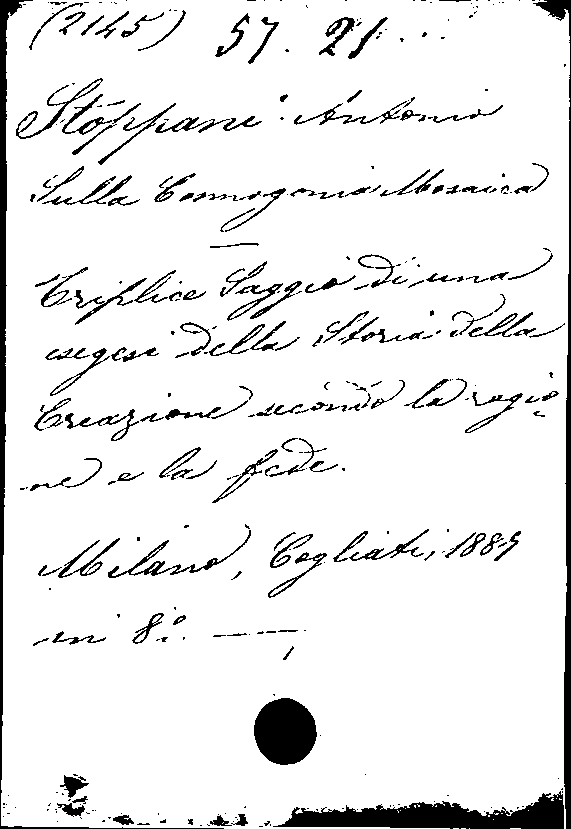 (2145) 57. 21...
Stoppani Antonio
Sulla Cosmogonia Mosaica
—
Triplice Saggio di una
esegesi della Storia della
Creazione secondo la ragio-
ne e la fede.
Milano, Cogliati, 1887
in 8º. —